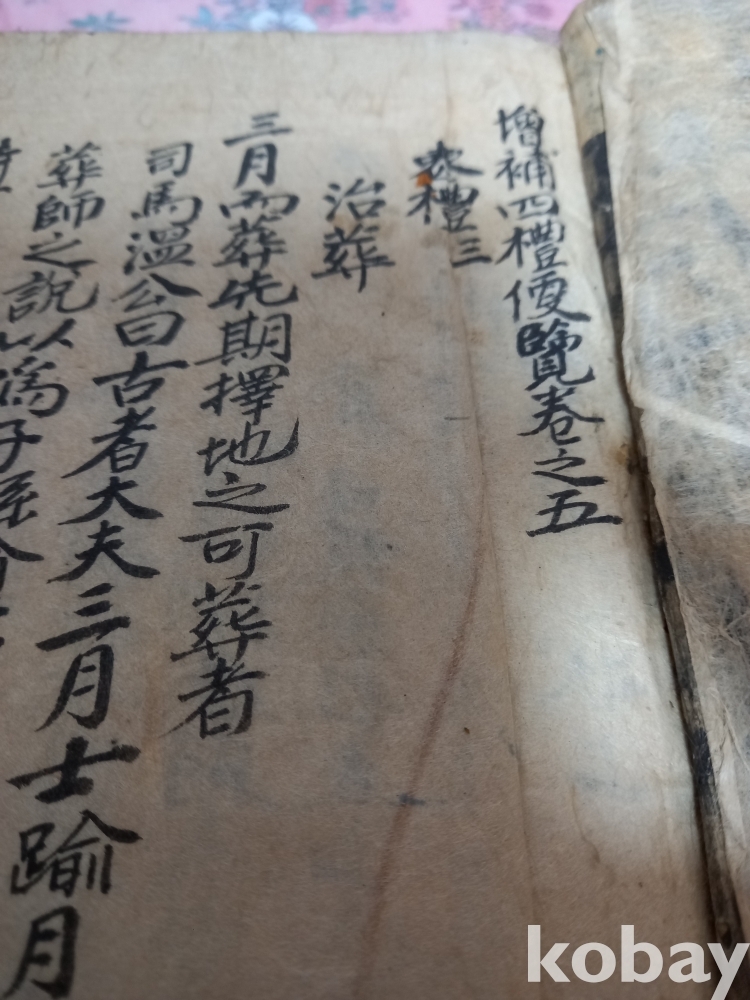 增補四禮便覽卷之五
喪禮三
治葬
三月而葬先期擇地之可葬者
司馬溫公曰古者大夫三月士踰月
葬師之說以爲子孫
kobay